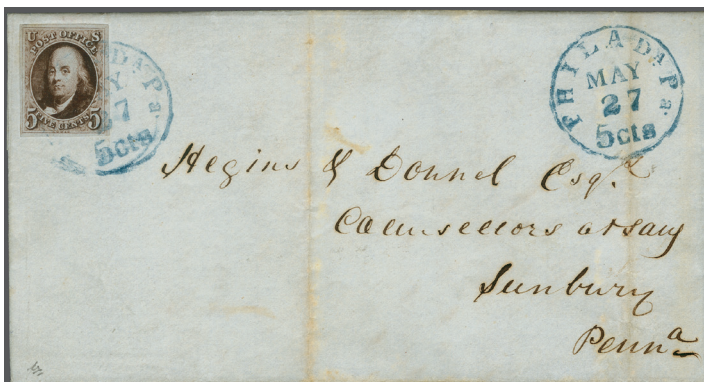 U S
POST OFFICE
5 FIVE CENTS 5
PHILADA Pa.
MAY
27
5cts
PHILADA Pa.
MAY
27
5cts
Hegins & Donnel Esqrs
Counsellors at Law
Sunbury
Penna